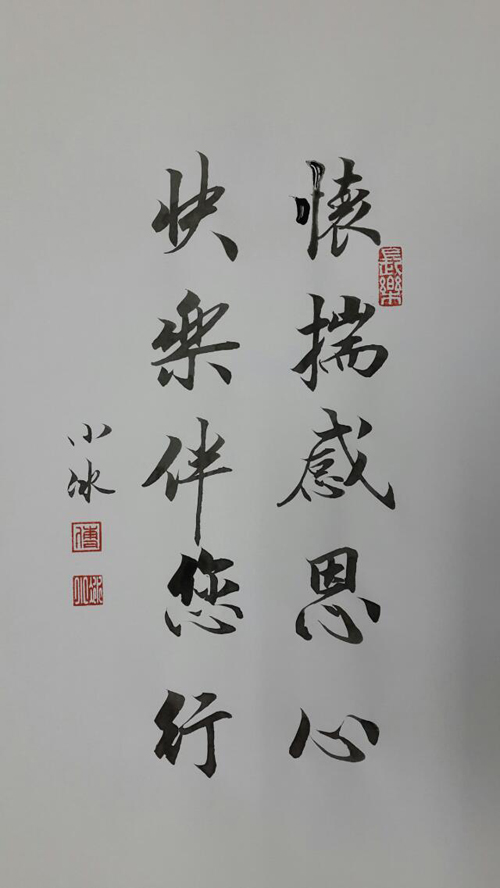 懷揣感恩心
長樂
快樂伴您行
小冰
傅
小冰